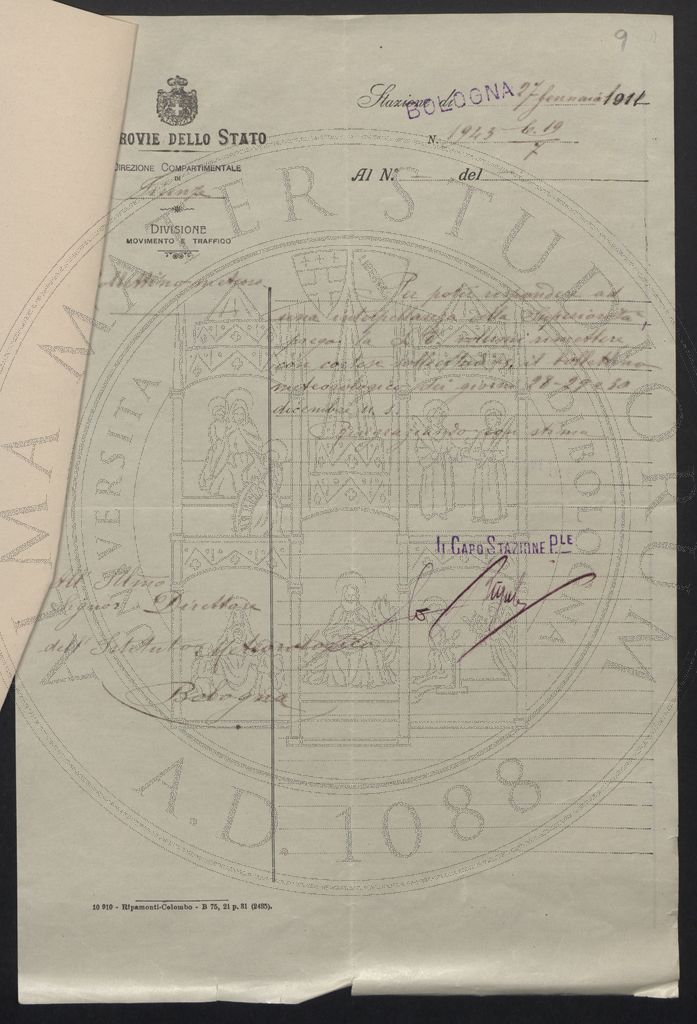 9
Stazione di BOLOGNA 27 Gennaio 1911
N. 1943-6.19
7
Al N.° — del
ROVIE DELLO STATO
DIREZIONE COMPARTIMENTALE
DI
Firenze
DIVISIONE
MOVIMENTO E TRAFFICO
Per poter rispondere ad
una interpellanza della Superiorità,
prego la S. V. volermi rimettere
con cortese sollecitudine, il bollettino
meteorologico dei giorni 28-29 e 30
dicembre u. s.
Ringraziando con stima
Il CAPO STAZIONE PLE
All' Illmo
Signor Direttore
dell' Istituto Meteorologico
Bologna
10 910 - Ripamonti-Colombo - B 75, 21 p. 31 (2485).
ALMA MATER STUDIORUM
UNIVERSITA DI BOLOGNA
A.D. 1088